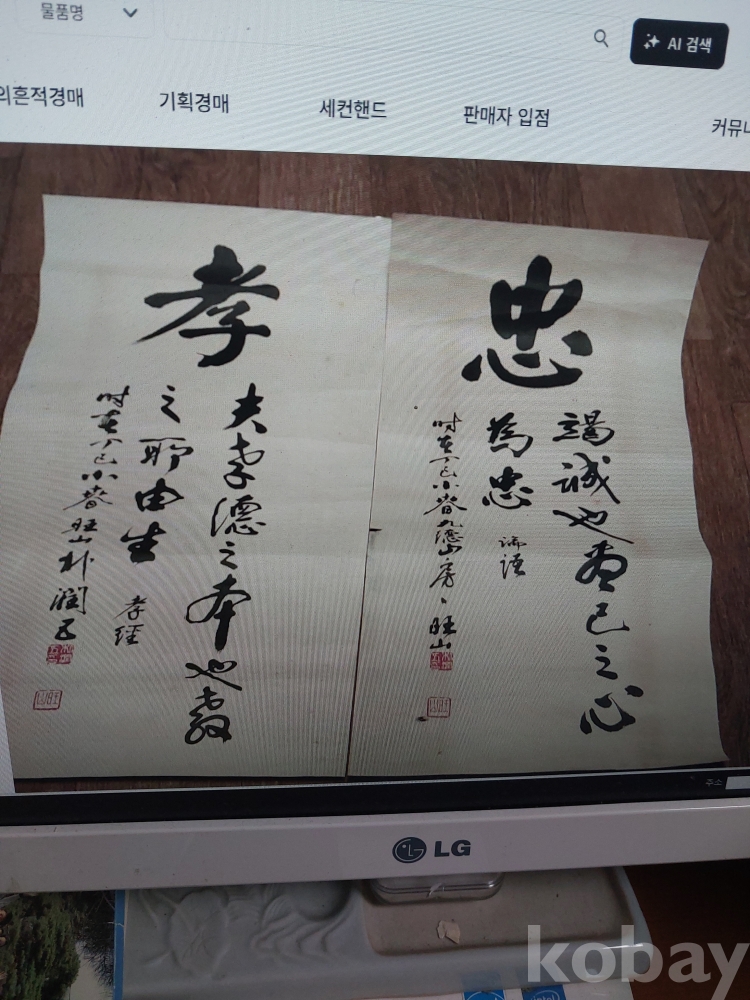 물품명
AI 검색
의흔적경매
기획경매
세컨핸드
판매자 입점
커뮤니
忠
竭誠也盡己之心
為忠 論語
時在丁巳小春九德山房、旺山
孝
夫孝德之本也敎
之所由生 孝經
時在丁巳小春旺山朴潤五
주소
LG
intel
kobay